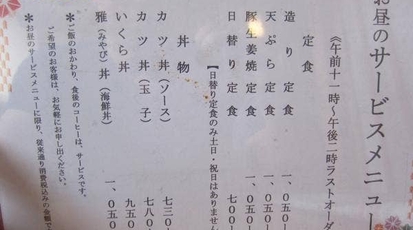 お昼のサービスメニュー
《午前十一時〜午後二時ラストオーダ
定食
造り定食 一、〇五〇
天ぷら定食 一、〇五〇
豚生姜焼定食 一、〇五〇
日替り定食 七〇〇
【日替り定食のみ土日・祝日はありません
丼物
カツ丼（ソース） 七三〇
カツ丼（玉子） 七八〇
いくら丼 九五〇
雅（みやび）丼（海鮮丼） 一、〇五〇
＊ご飯のおかわり、食後のコーヒーは、サービスです。
ご希望のお客様は、お気軽にお申し出ください。
＊お昼のサービスメニューに限り、従来通り消費税込みの金額で